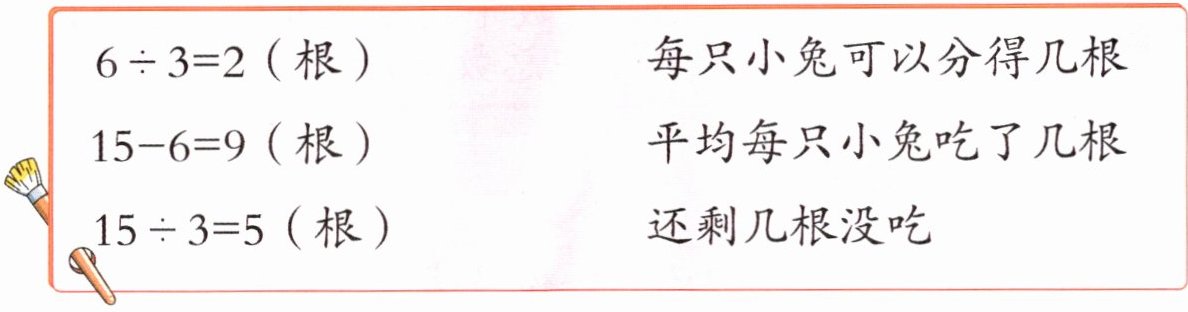 6÷3=2（根） 每只小兔可以分得几根
15-6=9（根） 平均每只小兔吃了几根
15÷3=5（根） 还剩几根没吃